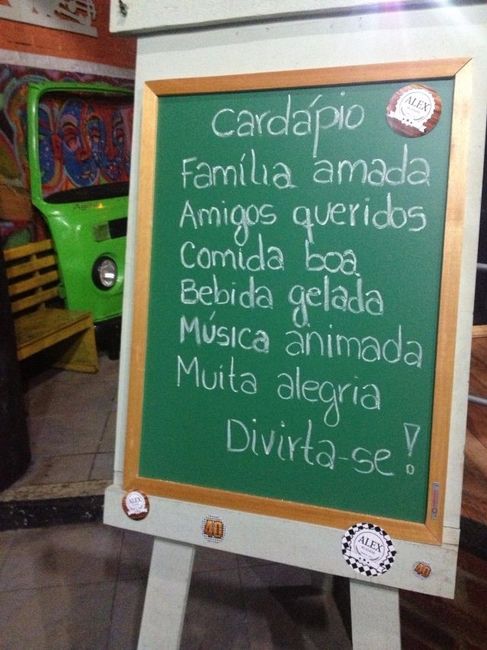 Cardápio
ALEX
Família amada
Amigos queridos
Comida boa
Bebida gelada
Música animada
Muita alegria
Divirta-se!
40
ALEX
40